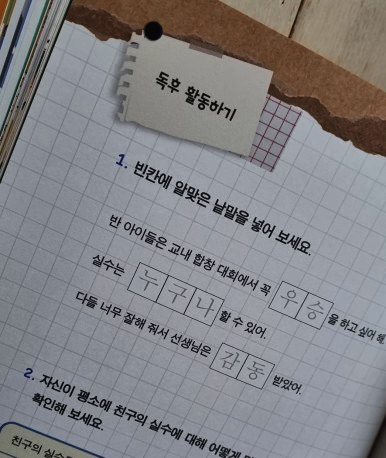 독후 활동하기
1. 빈칸에 알맞은 낱말을 넣어 보세요.
반 아이들은 교내 합창 대회에서 꼭 우승을 하고 싶어 해.
실수는 누구나 할 수 있어.
다들 너무 잘해 줘서 선생님은 감동 받았어.
2. 자신이 평소에 친구의 실수에 대해 어떻게
확인해 보세요.
친구의 실수